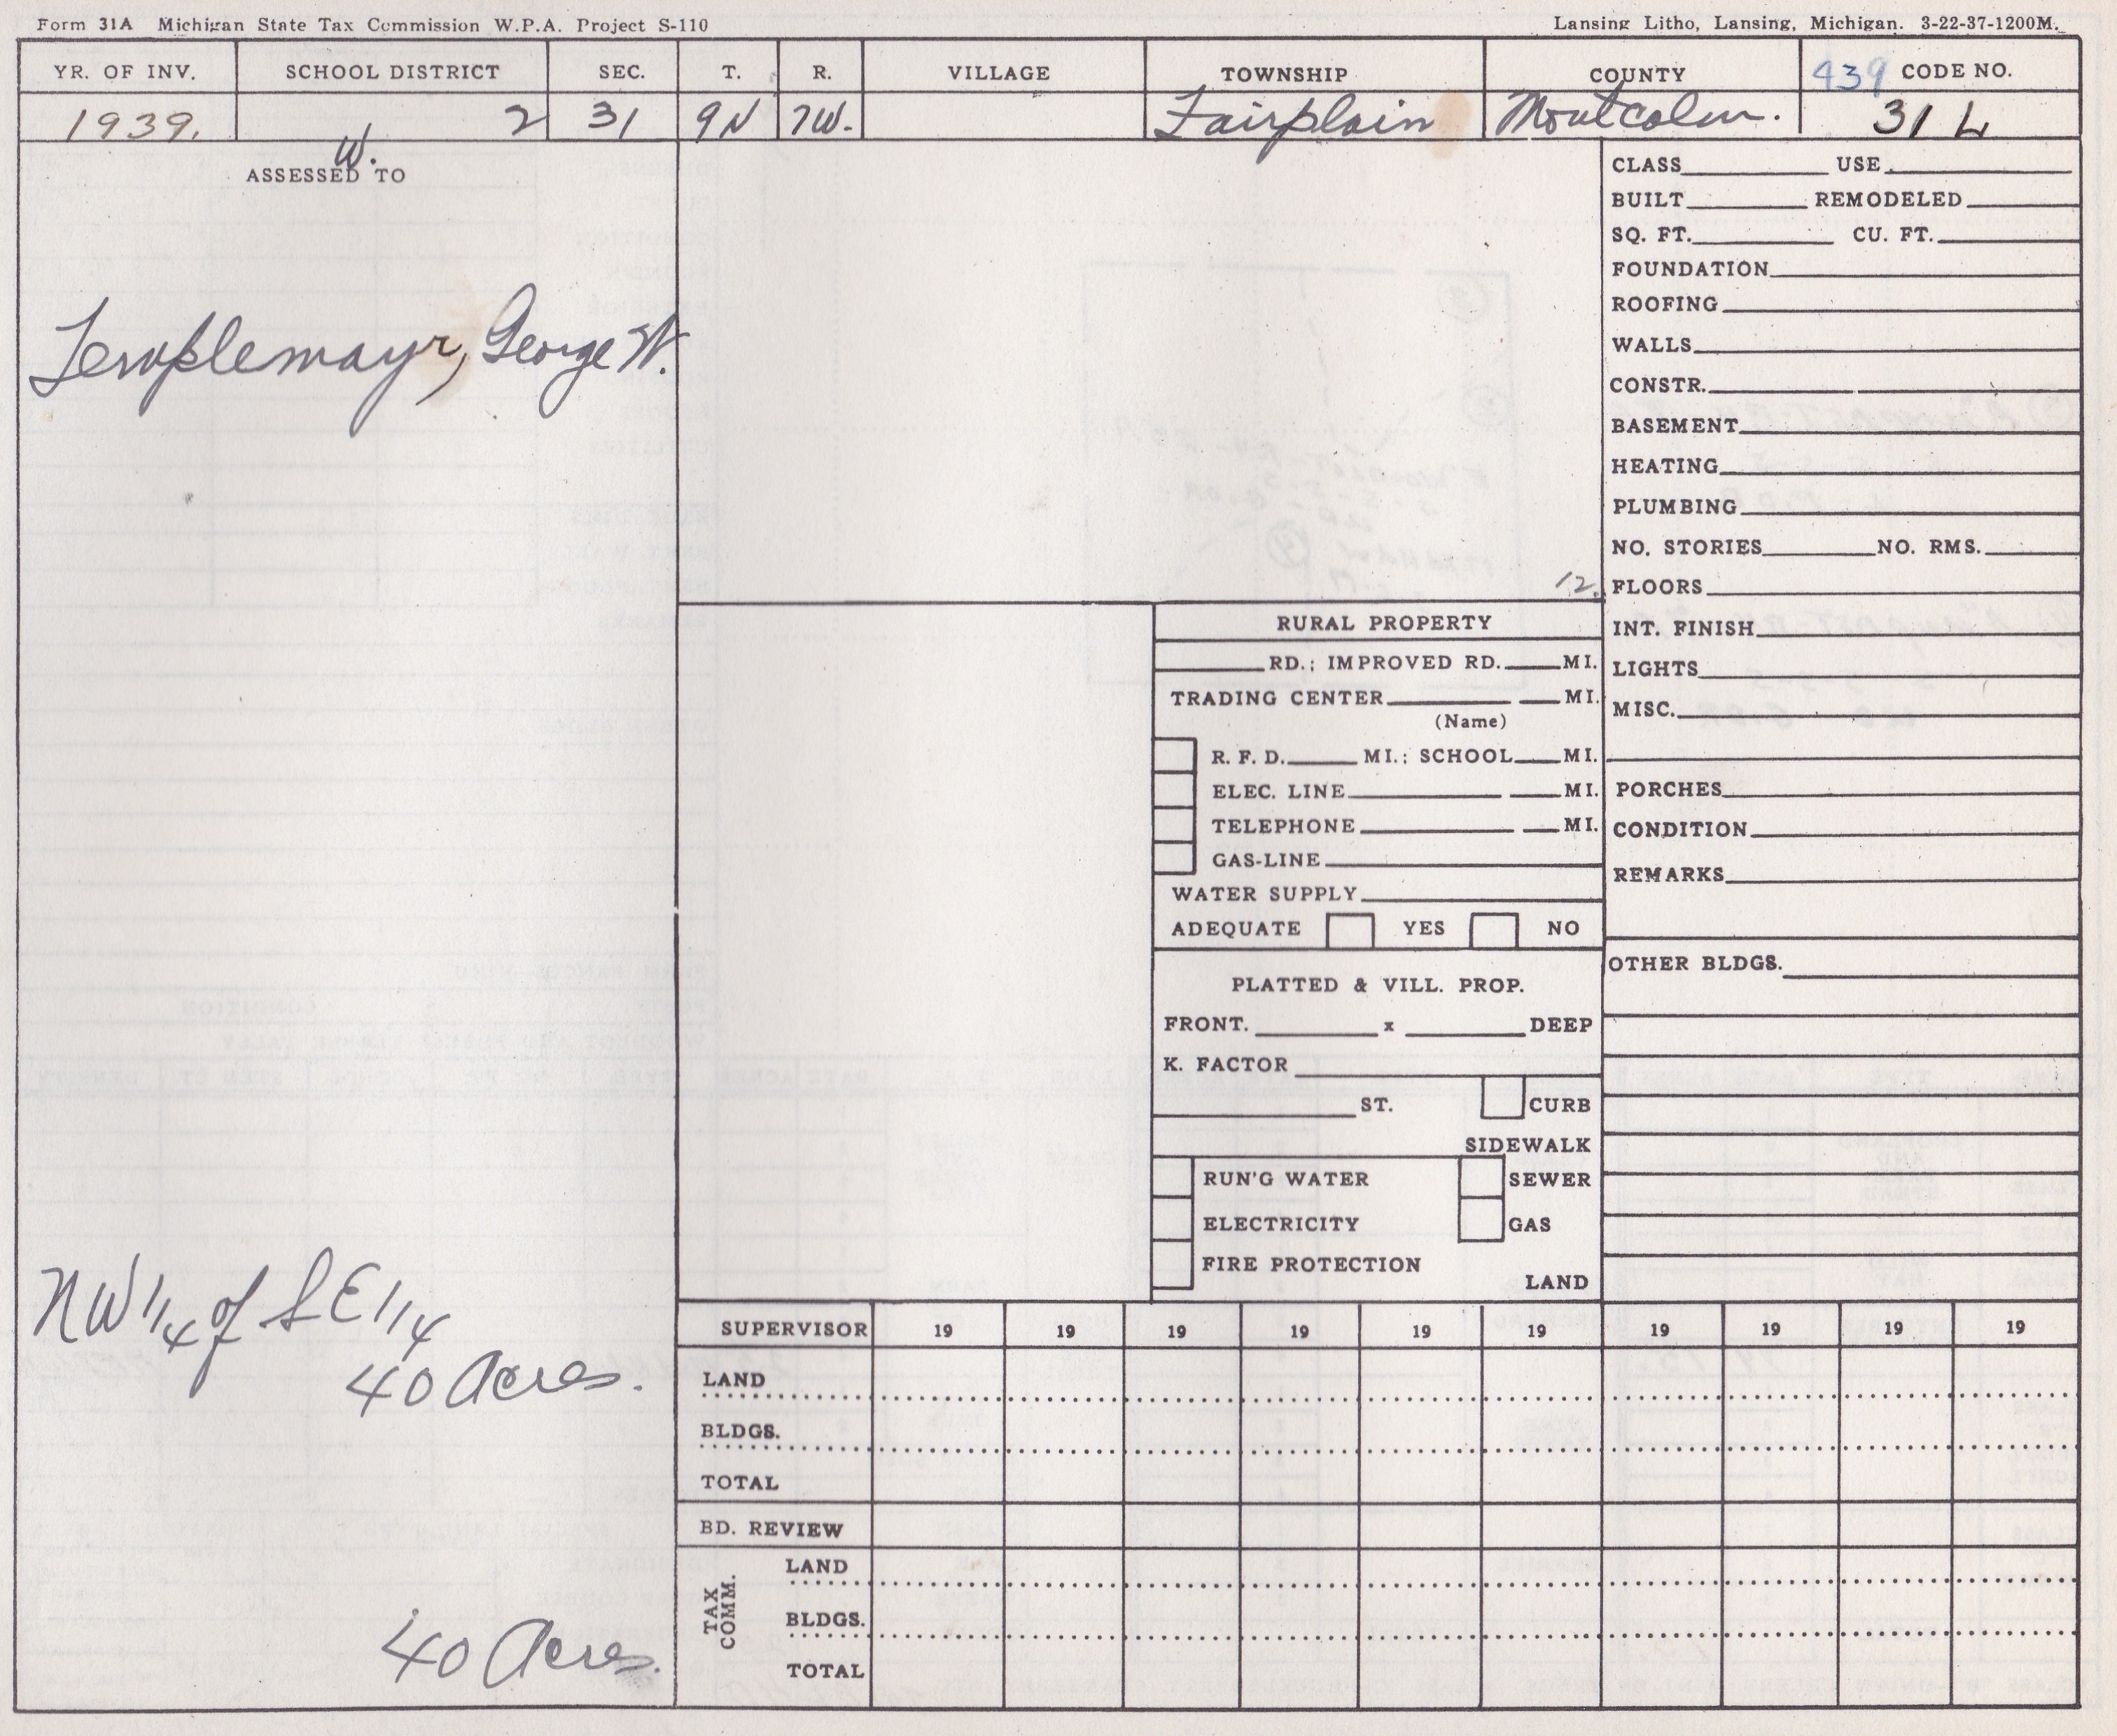 Form 31A Michigan State Tax Commission W.P.A. Project S-110
Lansing Litho, Lansing, Michigan. 3-22-37-1200M.
YR. OF INV. SCHOOL DISTRICT SEC. T. R. VILLAGE TOWNSHIP COUNTY 439 CODE NO.
1939. 2 31 9N 7W. Fairplain Montcalm. 31 L
W.
ASSESSED TO
Templemayr, George W.
NW 1/4 of SE 1/4
40 Acres.
40 Acres.
12.
RURAL PROPERTY
RD.; IMPROVED RD. MI.
TRADING CENTER MI.
(Name)
R. F. D. MI.; SCHOOL MI.
ELEC. LINE MI.
TELEPHONE MI.
GAS-LINE
WATER SUPPLY
ADEQUATE YES NO
PLATTED & VILL. PROP.
FRONT. x DEEP
K. FACTOR
ST. CURB
SIDEWALK
RUN'G WATER SEWER
ELECTRICITY GAS
FIRE PROTECTION
LAND
CLASS USE
BUILT REMODELED
SQ. FT. CU. FT.
FOUNDATION
ROOFING
WALLS
CONSTR.
BASEMENT
HEATING
PLUMBING
NO. STORIES NO. RMS.
FLOORS
INT. FINISH
LIGHTS
MISC.
PORCHES
CONDITION
REMARKS
OTHER BLDGS.
SUPERVISOR 19 19 19 19 19 19 19 19 19 19
LAND
BLDGS.
TOTAL
BD. REVIEW
TAX COMM.
LAND
BLDGS.
TOTAL